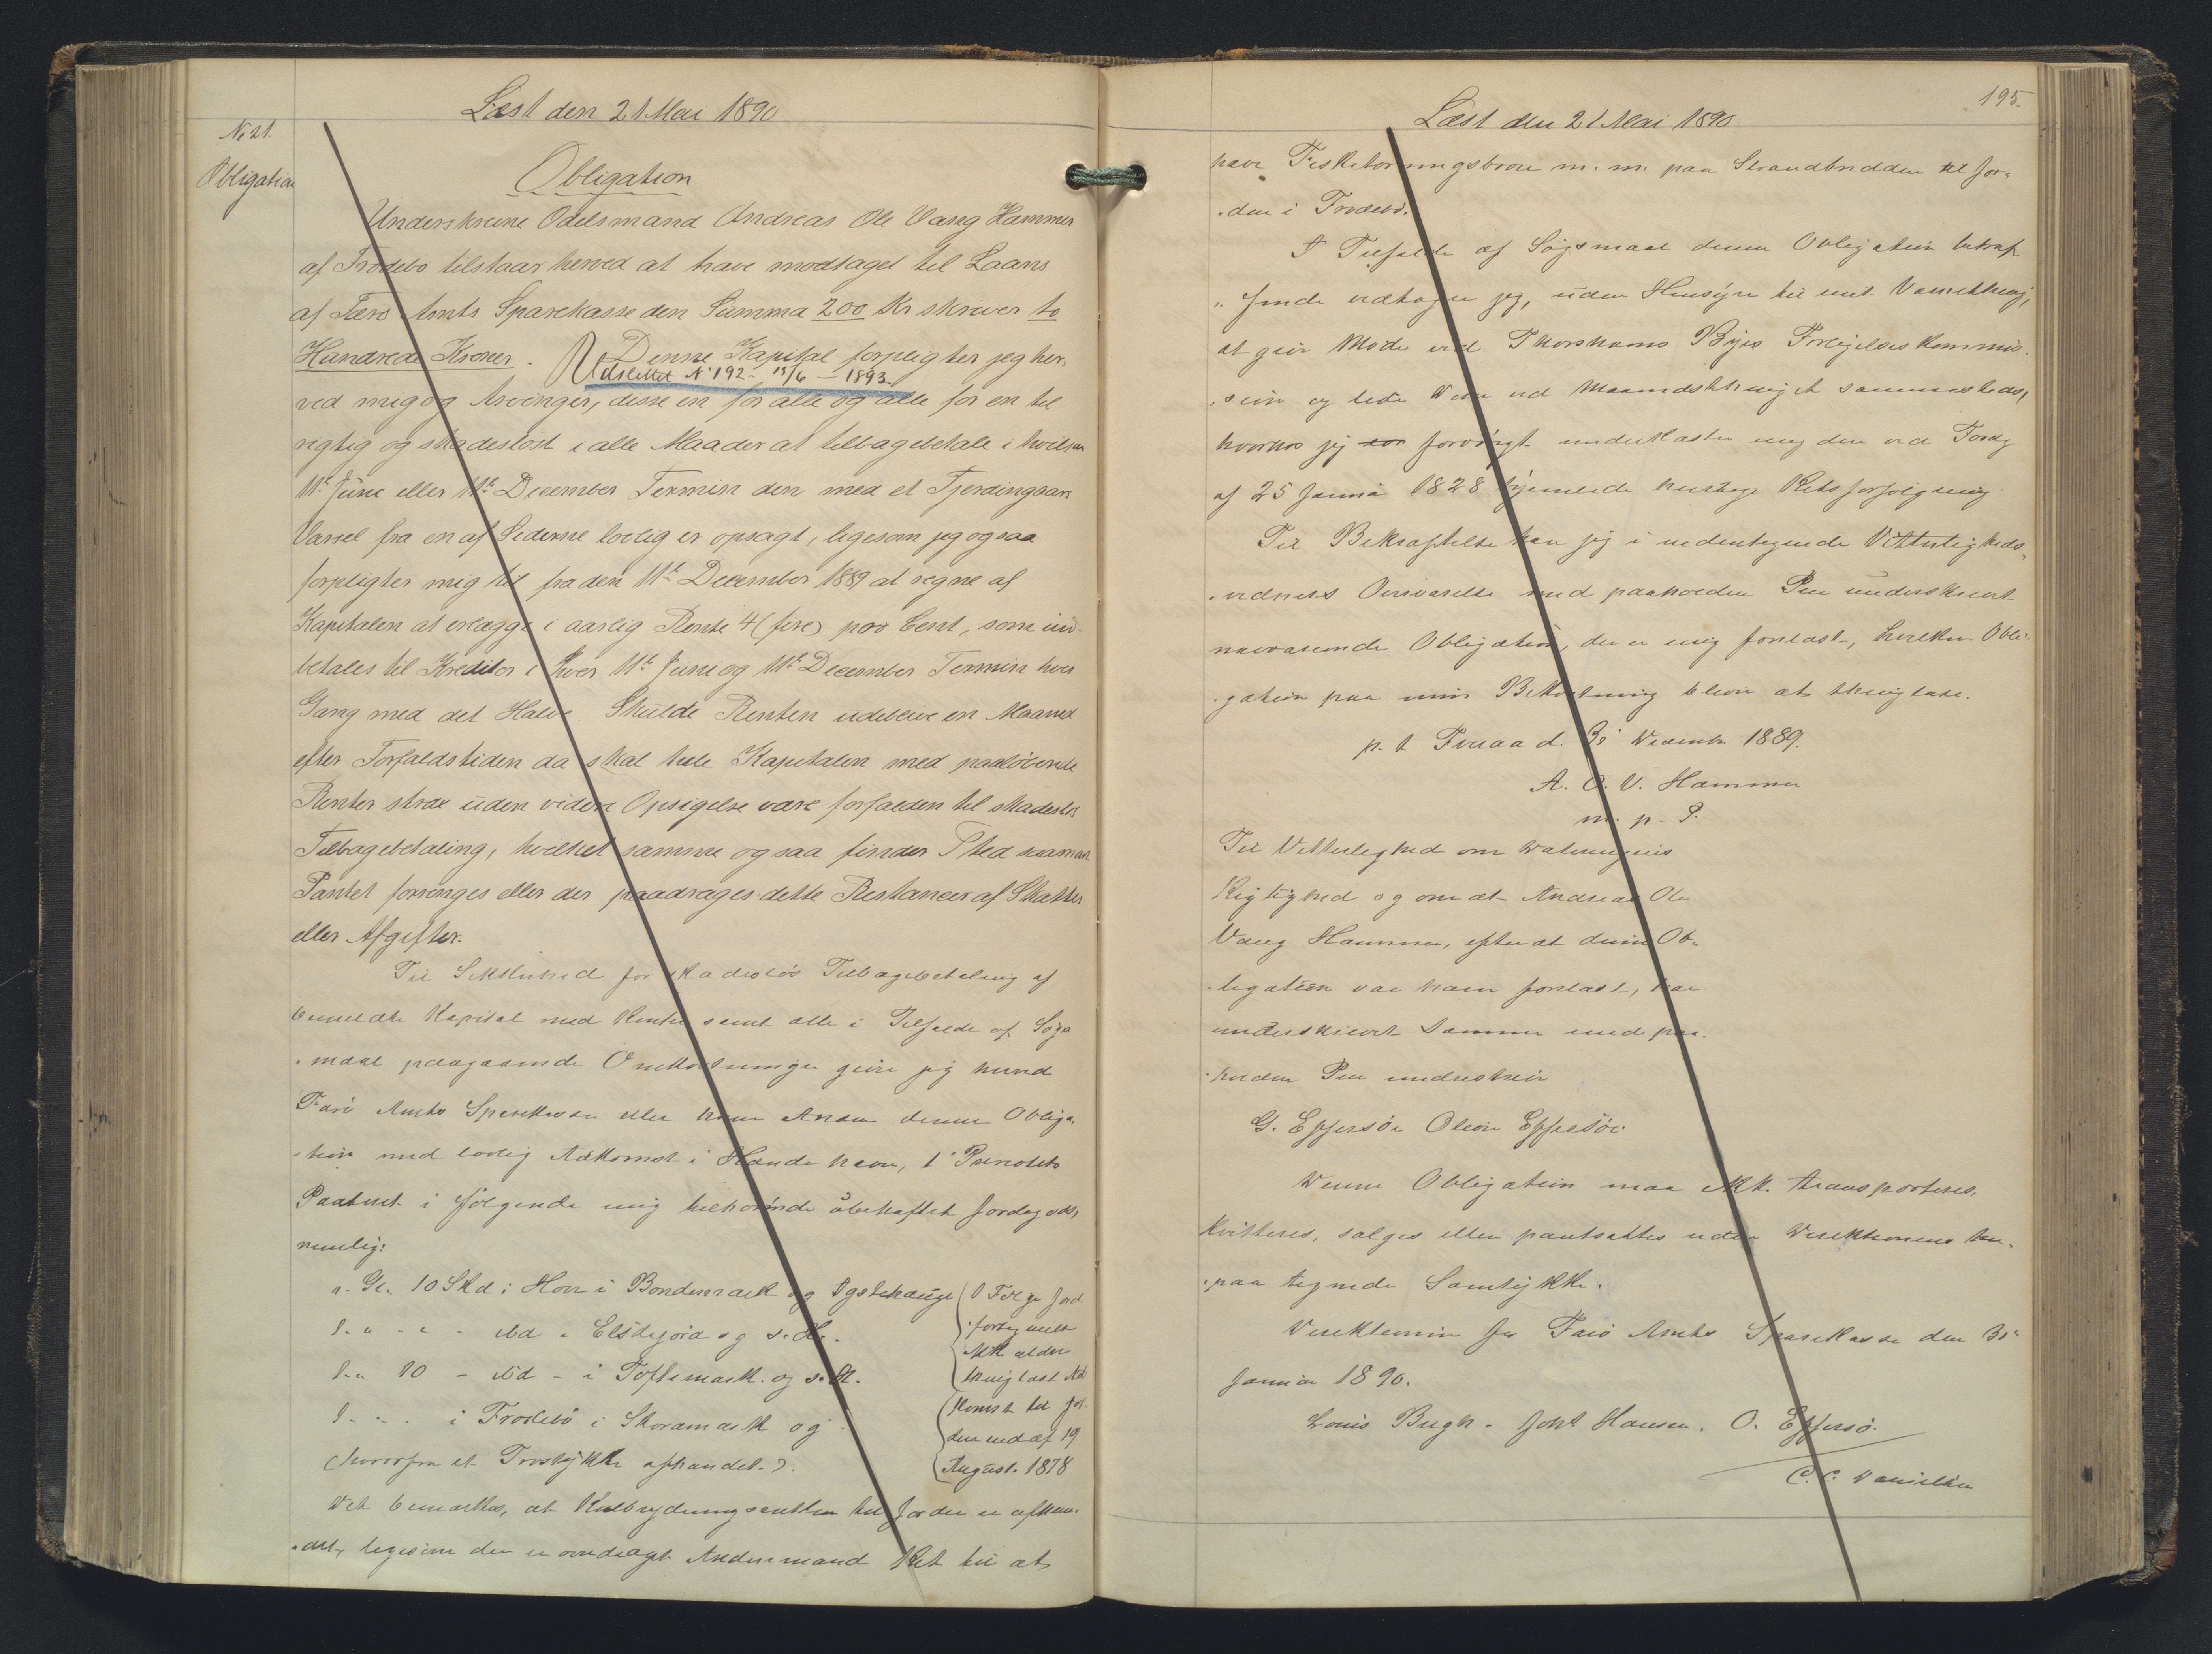 Læst den 21 Mai 1890
No 21.
Obligation
Obligation
Underskrevne Odelsmand Andreas Ole Vang Hammer
af Frodebø tilstaar herved at have modtaget til Laans
af Færø Amts Sparekasse den Summa 200 Kr skriver to
Hundrede Kroner. Denne Kapital forpligter jeg her-
Udslettet No 192 - 15/6 - 1893.
ved mig og Arvinger, disse en for alle og alle for en til
rigtig og skadesløst i alle Maader at tilbagebetale i hvilken
11te Juni eller 11te December Termin den med et Fjerdingaars
Varsel fra en af Siderne lovlig er opsagt, ligesom jeg ogsaa
forpligter mig til fra den 11te December 1889 at regne af
Kapitalen at erlægge i aarlig Rente 4 (fire) pro Cent, som ind-
betales til Kreditor i hver 11te Juni og 11te December Termin hver
Gang med det Halve. Skulde Renten udeblive en Maaned
efter Forfaldstiden da skal hele Kapitalen med paaløbende
Renter strax uden videre Opsigelse være forfalden til skadesløs
Tilbagebetaling, hvilket samme ogsaa finder Sted saaman
Pantet forringes eller der paadrages dette Restancer af Skatter
eller Afgifter.
Til Sikkerhed for skadesløs Tilbagebetaling af
bemeldte Kapital med Renter samt alle i Tilfælde af Søgs-
maal paagaaende Omkostninger giver jeg herved
Færø Amts Sparekasse eller hvem Anden denne Obliga-
tion med lovlig Adkomst i Hænde haver, 1' Prioritets
Panteret i følgende mig tilhørende ubehæftet Jordegods,
nemlig:
10 Skd i Hov i Bondemark og Ygstehauge
ibd - Elsdegjord og s. H.
10 - ibd - i Toftemark. og s. H.
i Frodebø i Skoramark og
(hvorfra et Trøstykke afhændet).
I Følge Jord
forteg nelse
ikk ælder
thinglæst Ad
komst til Jor-
den end af 19
August 1878
Det bemærkes, at Kulbrydningsretten til Jorden er afhæn-
det, ligesom der er overdraget Andenmand Ret til at
195.
Læst den 21 Mai 1890
have Fisketørringsbrou m. m. paa Strandbredden til Jor-
den i Frodebø.
I Tilfælde af Søgsmaal denne Obligation betræf-
fende vedtager jeg, uden Hensyn til mit Værnething,
at give Møde ved Thorshavns Byes Forligelseskommis-
sion og lide Dom ved Maanedsthinget sammesteds,
hvorhos jeg forøvrigt underkaster mig den ved Fordg
af 25 Januar 1828 hjemlede hurtige Retsforfølgning
Til Bekræftelse har jeg i nedentegnede Vitterligheds-
vidners Overværelse med paaholden Pen underskrevet
nærværende Obligation, der er mig forelæst, hvilken Obli-
gation paa min Bekostning bliver at thinglæse.
p. t Frodebø d. 30' December 1889.
A. O. V. Hammer
m. p. P.
Til Vitterlighed om Dateringens
Rigtighed og om at Andreas Ole
Vang Hammer, efterat denne Ob-
ligation var ham forelæst, har
underskrevet samme med paa-
holden Pen underskriver
G. Effersøe Oliver Effersøe
Denne Obligation maa ikke transporteres,
kvitteres, sælges eller pantsættes uden Direktionens her-
paa tegnede Samtykke.
Direktionen for Færø Amts Sparekasse den 30'
Januar 1890.
Louis Bergh. Joh Hansen. O. Effersø.
C. C. Danielsen